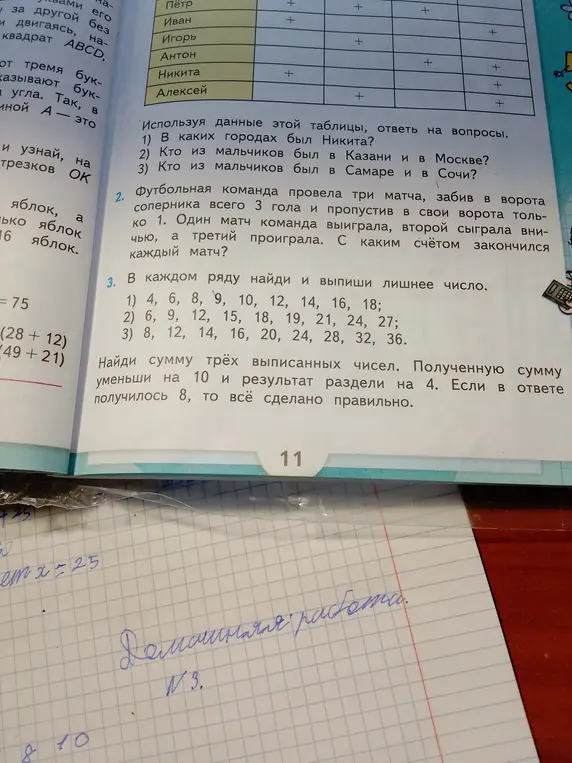 квадрат ABCD,
от тремя бук-
угла. Так, в
иной A — это
и узнай, на
трезков OK
яблок, а
лько яблок
16 яблок.
= 75
(28 + 12)
(49 + 21)
Пётр + + +
Иван + +
Игорь +
Антон + +
Никита + +
Алексей + +
Используя данные этой таблицы, ответь на вопросы.
1) В каких городах был Никита?
2) Кто из мальчиков был в Казани и в Москве?
3) Кто из мальчиков был в Самаре и в Сочи?
2. Футбольная команда провела три матча, забив в ворота
соперника всего 3 гола и пропустив в свои ворота толь-
ко 1. Один матч команда выиграла, второй сыграла вни-
чью, а третий проиграла. С каким счётом закончился
каждый матч?
3. В каждом ряду найди и выпиши лишнее число.
1) 4, 6, 8, 9, 10, 12, 14, 16, 18;
2) 6, 9, 12, 15, 18, 19, 21, 24, 27;
3) 8, 12, 14, 16, 20, 24, 28, 32, 36.
Найди сумму трёх выписанных чисел. Полученную сумму
уменьши на 10 и результат раздели на 4. Если в ответе
получилось 8, то всё сделано правильно.
11
ет x = 25
Домашняя работа.
N 3.
8 10